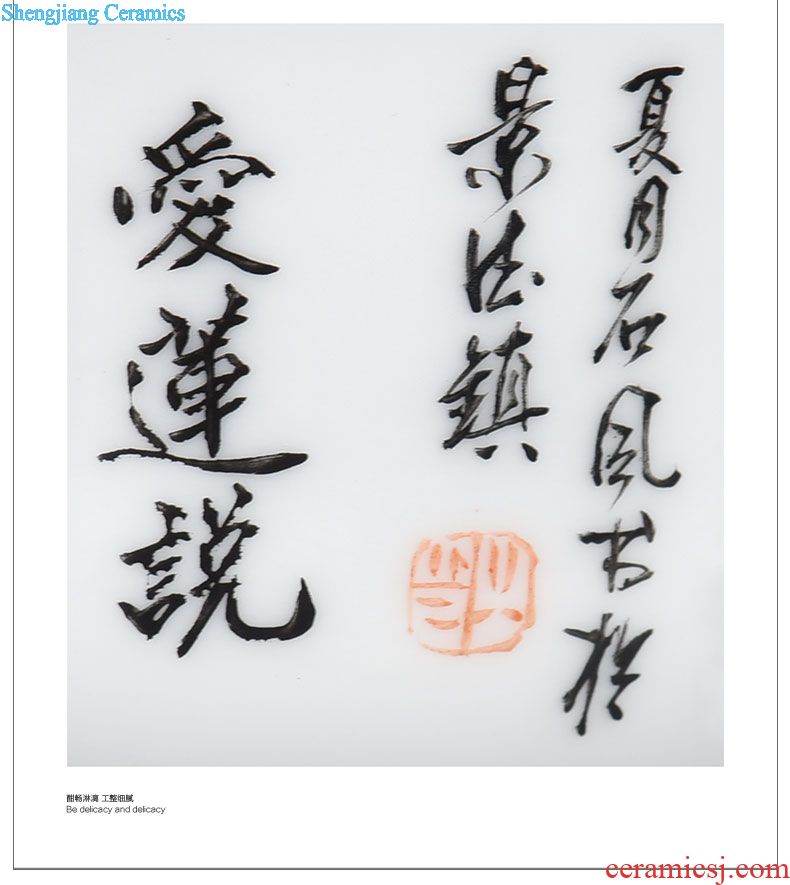 Shengjiang Ceramics
夏月石风书於
景德鎮
愛蓮説
酣畅淋漓 工整细腻
Be delicacy and delicacy
ceramicsj.com